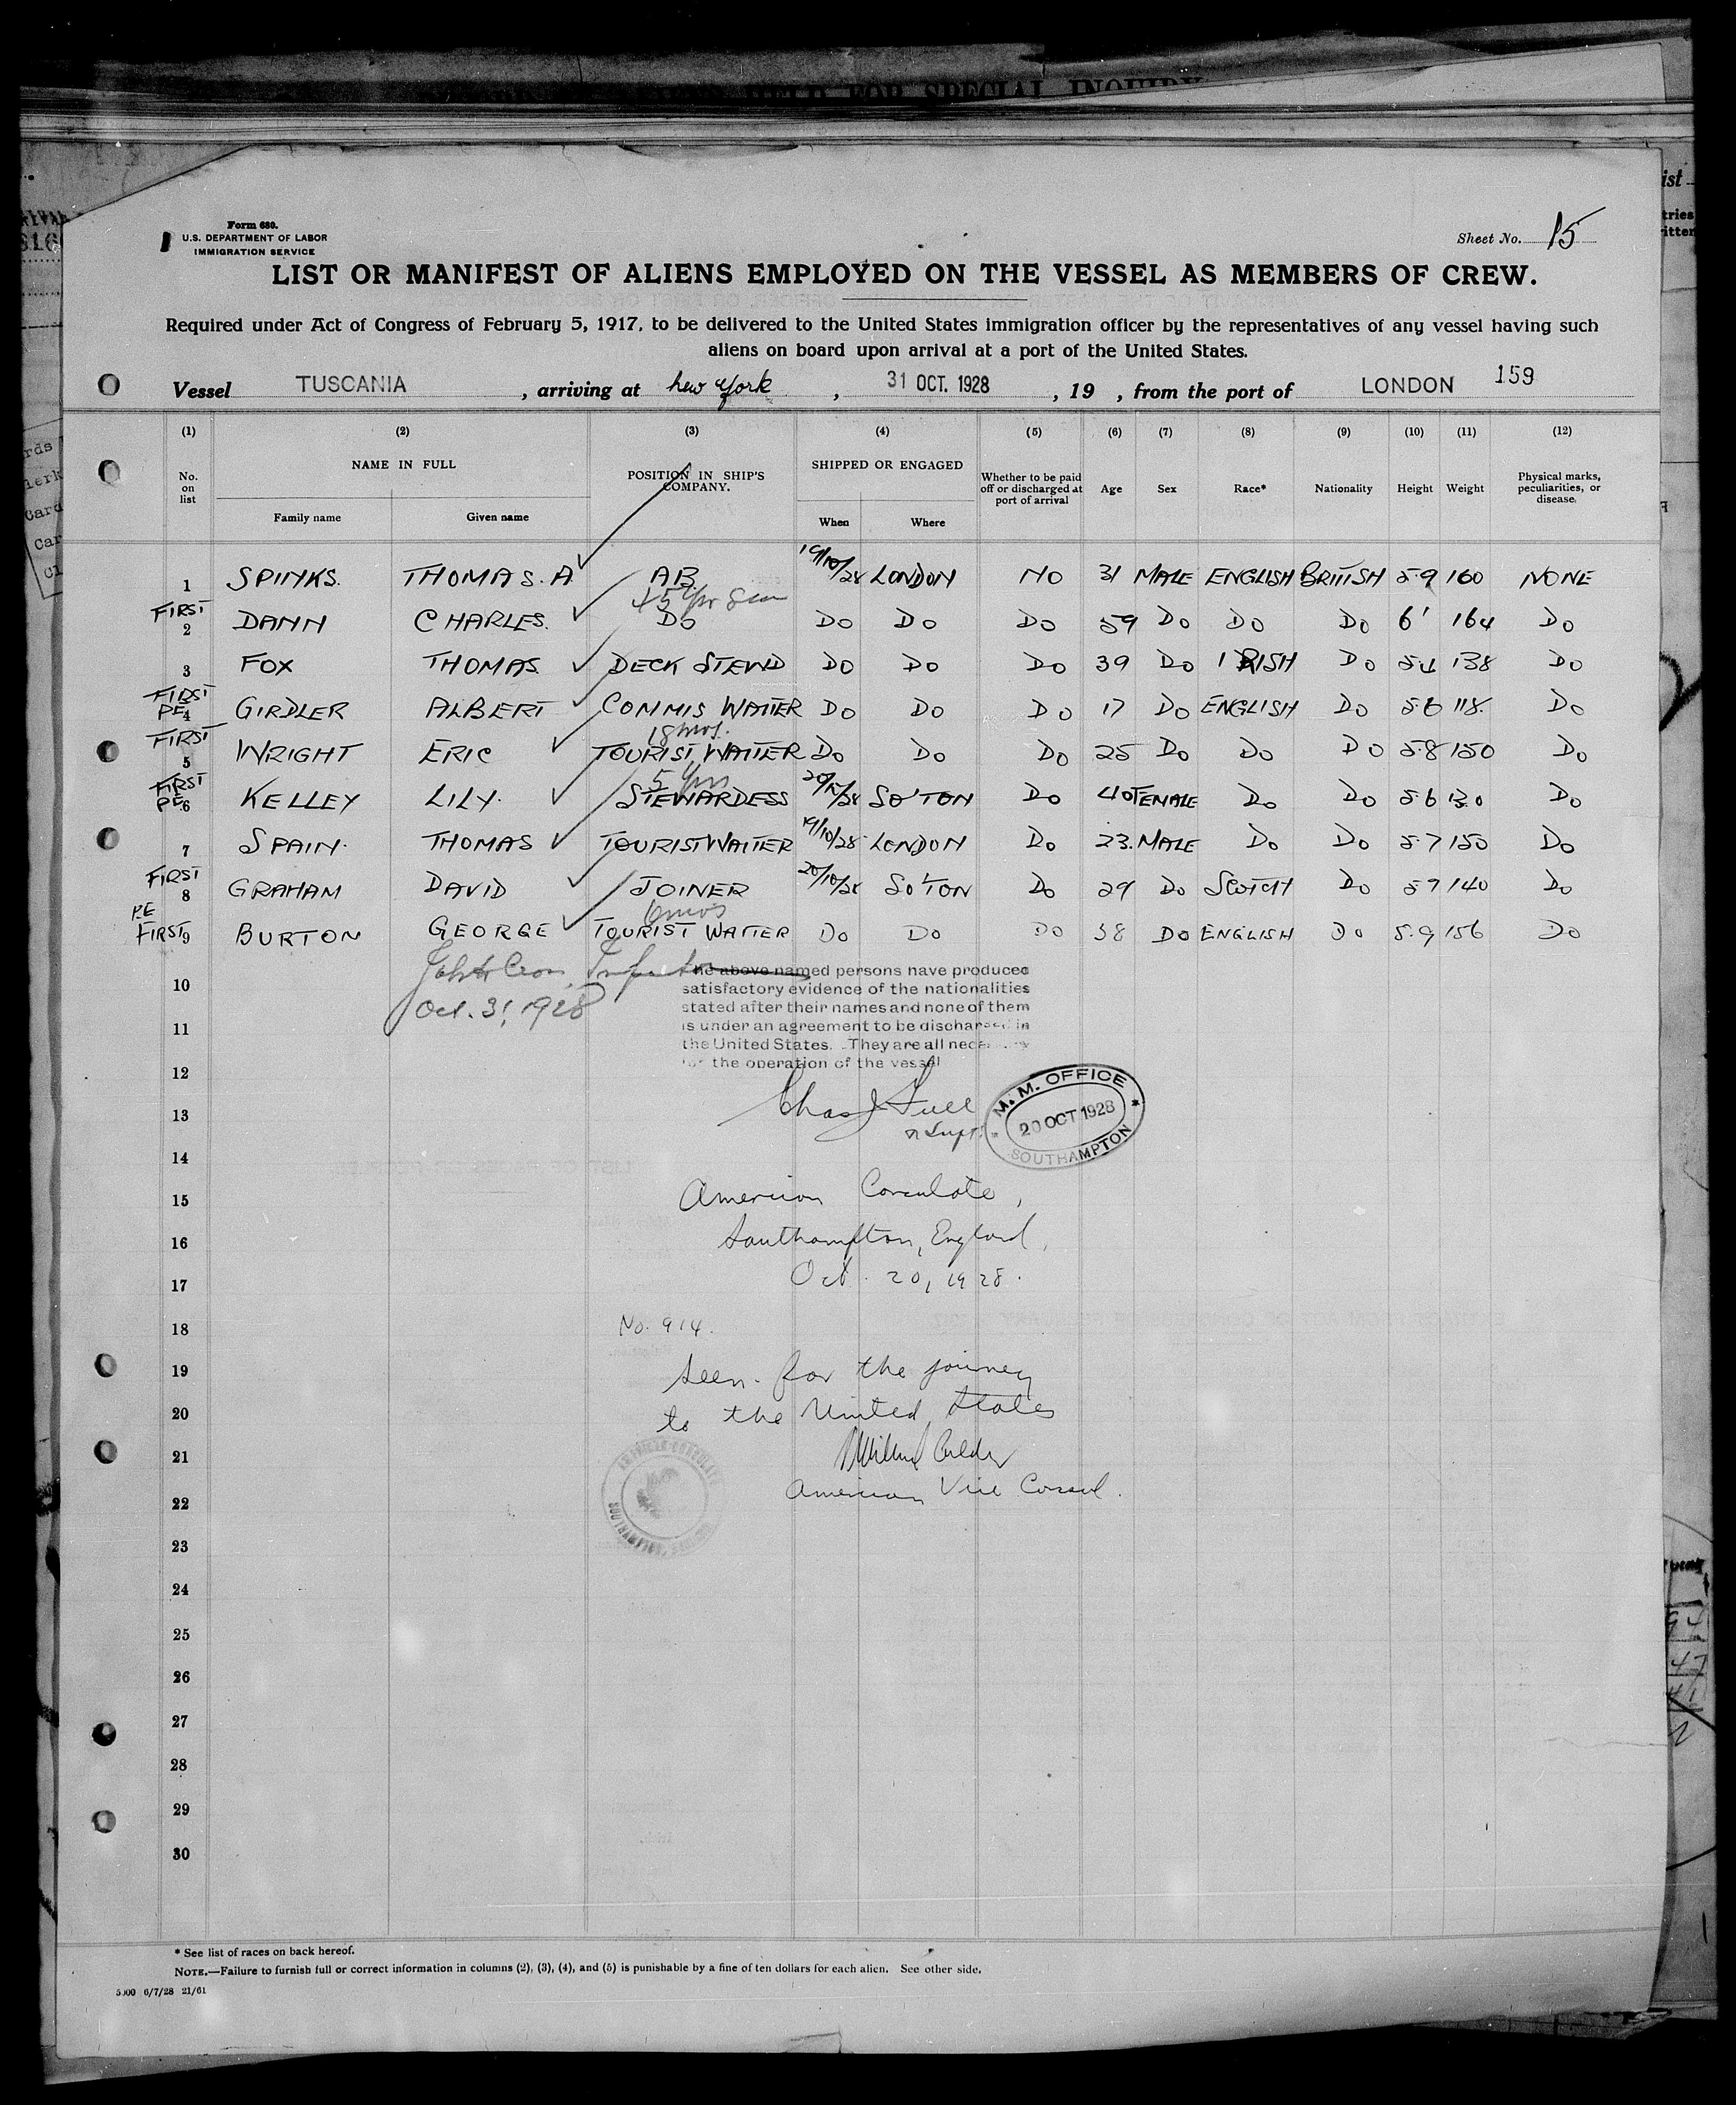 HELD FOR SPECIAL INQUIRY
Form 680.
U.S. DEPARTMENT OF LABOR
IMMIGRATION SERVICE
Sheet No. 15
LIST OR MANIFEST OF ALIENS EMPLOYED ON THE VESSEL AS MEMBERS OF CREW.
Required under Act of Congress of February 5, 1917, to be delivered to the United States immigration officer by the representatives of any vessel having such
aliens on board upon arrival at a port of the United States.
Vessel TUSCANIA , arriving at New York , 31 OCT. 1928 , 19 , from the port of LONDON 159
(1) (2) (3) (4) (5) (6) (7) (8) (9) (10) (11) (12)
No. on list NAME IN FULL Family name Given name POSITION IN SHIP'S COMPANY. SHIPPED OR ENGAGED When Where Whether to be paid off or discharged at port of arrival Age Sex Race* Nationality Height Weight Physical marks, peculiarities, or disease.
1 SPINKS. THOMAS. A AB 19/10/28 LONDON NO 31 MALE ENGLISH BRITISH 5.9 160 NONE
FIRST 2 DANN CHARLES. 45 yrs Sea DO DO DO DO 59 DO DO DO 6' 164 DO
3 FOX THOMAS. DECK STEWD DO DO DO 39 DO IRISH DO 5.4 138 DO
FIRST PE 4 GIRDLER ALBERT COMMIS WAITER DO DO DO 17 DO ENGLISH DO 5.6 118. DO
FIRST 5 WRIGHT ERIC 18 mos. TOURIST WAITER DO DO DO 25 DO DO DO 5.8 150 DO
FIRST PE 6 KELLEY LILY. 5 yrs STEWARDESS 20/10/28 SO'TON DO 40 FEMALE DO DO 5.6 130 DO
7 SPAIN. THOMAS TOURIST WAITER 19/10/28 LONDON DO 23. MALE DO DO 5.7 150 DO
FIRST 8 GRAHAM DAVID JOINER 20/10/28 SO'TON DO 29 DO SCOTCH DO 5 7 140 DO
PE FIRST 9 BURTON GEORGE 6 mos TOURIST WAITER DO DO DO 38 DO ENGLISH DO 5.9 156 DO
10
Oct. 31, 1928
11
The above named persons have produced
satisfactory evidence of the nationalities
stated after their names and none of them
is under an agreement to be discharged in
the United States. They are all necessary
for the operation of the vessel
12
Chas J
13
Supt.
M. M. OFFICE
20 OCT 1928
SOUTHAMPTON
14
15 American Consulate,
16 Southampton, England,
17 Oct. 20, 1928.
18 No. 914.
19 Seen for the journey
20 to the United States
21
22 American Vice Consul.
AMERICAN CONSULATE
23
24
25
26
27
28
29
30
* See list of races on back hereof.
NOTE.—Failure to furnish full or correct information in columns (2), (3), (4), and (5) is punishable by a fine of ten dollars for each alien. See other side.
5000 6/7/28 21/61